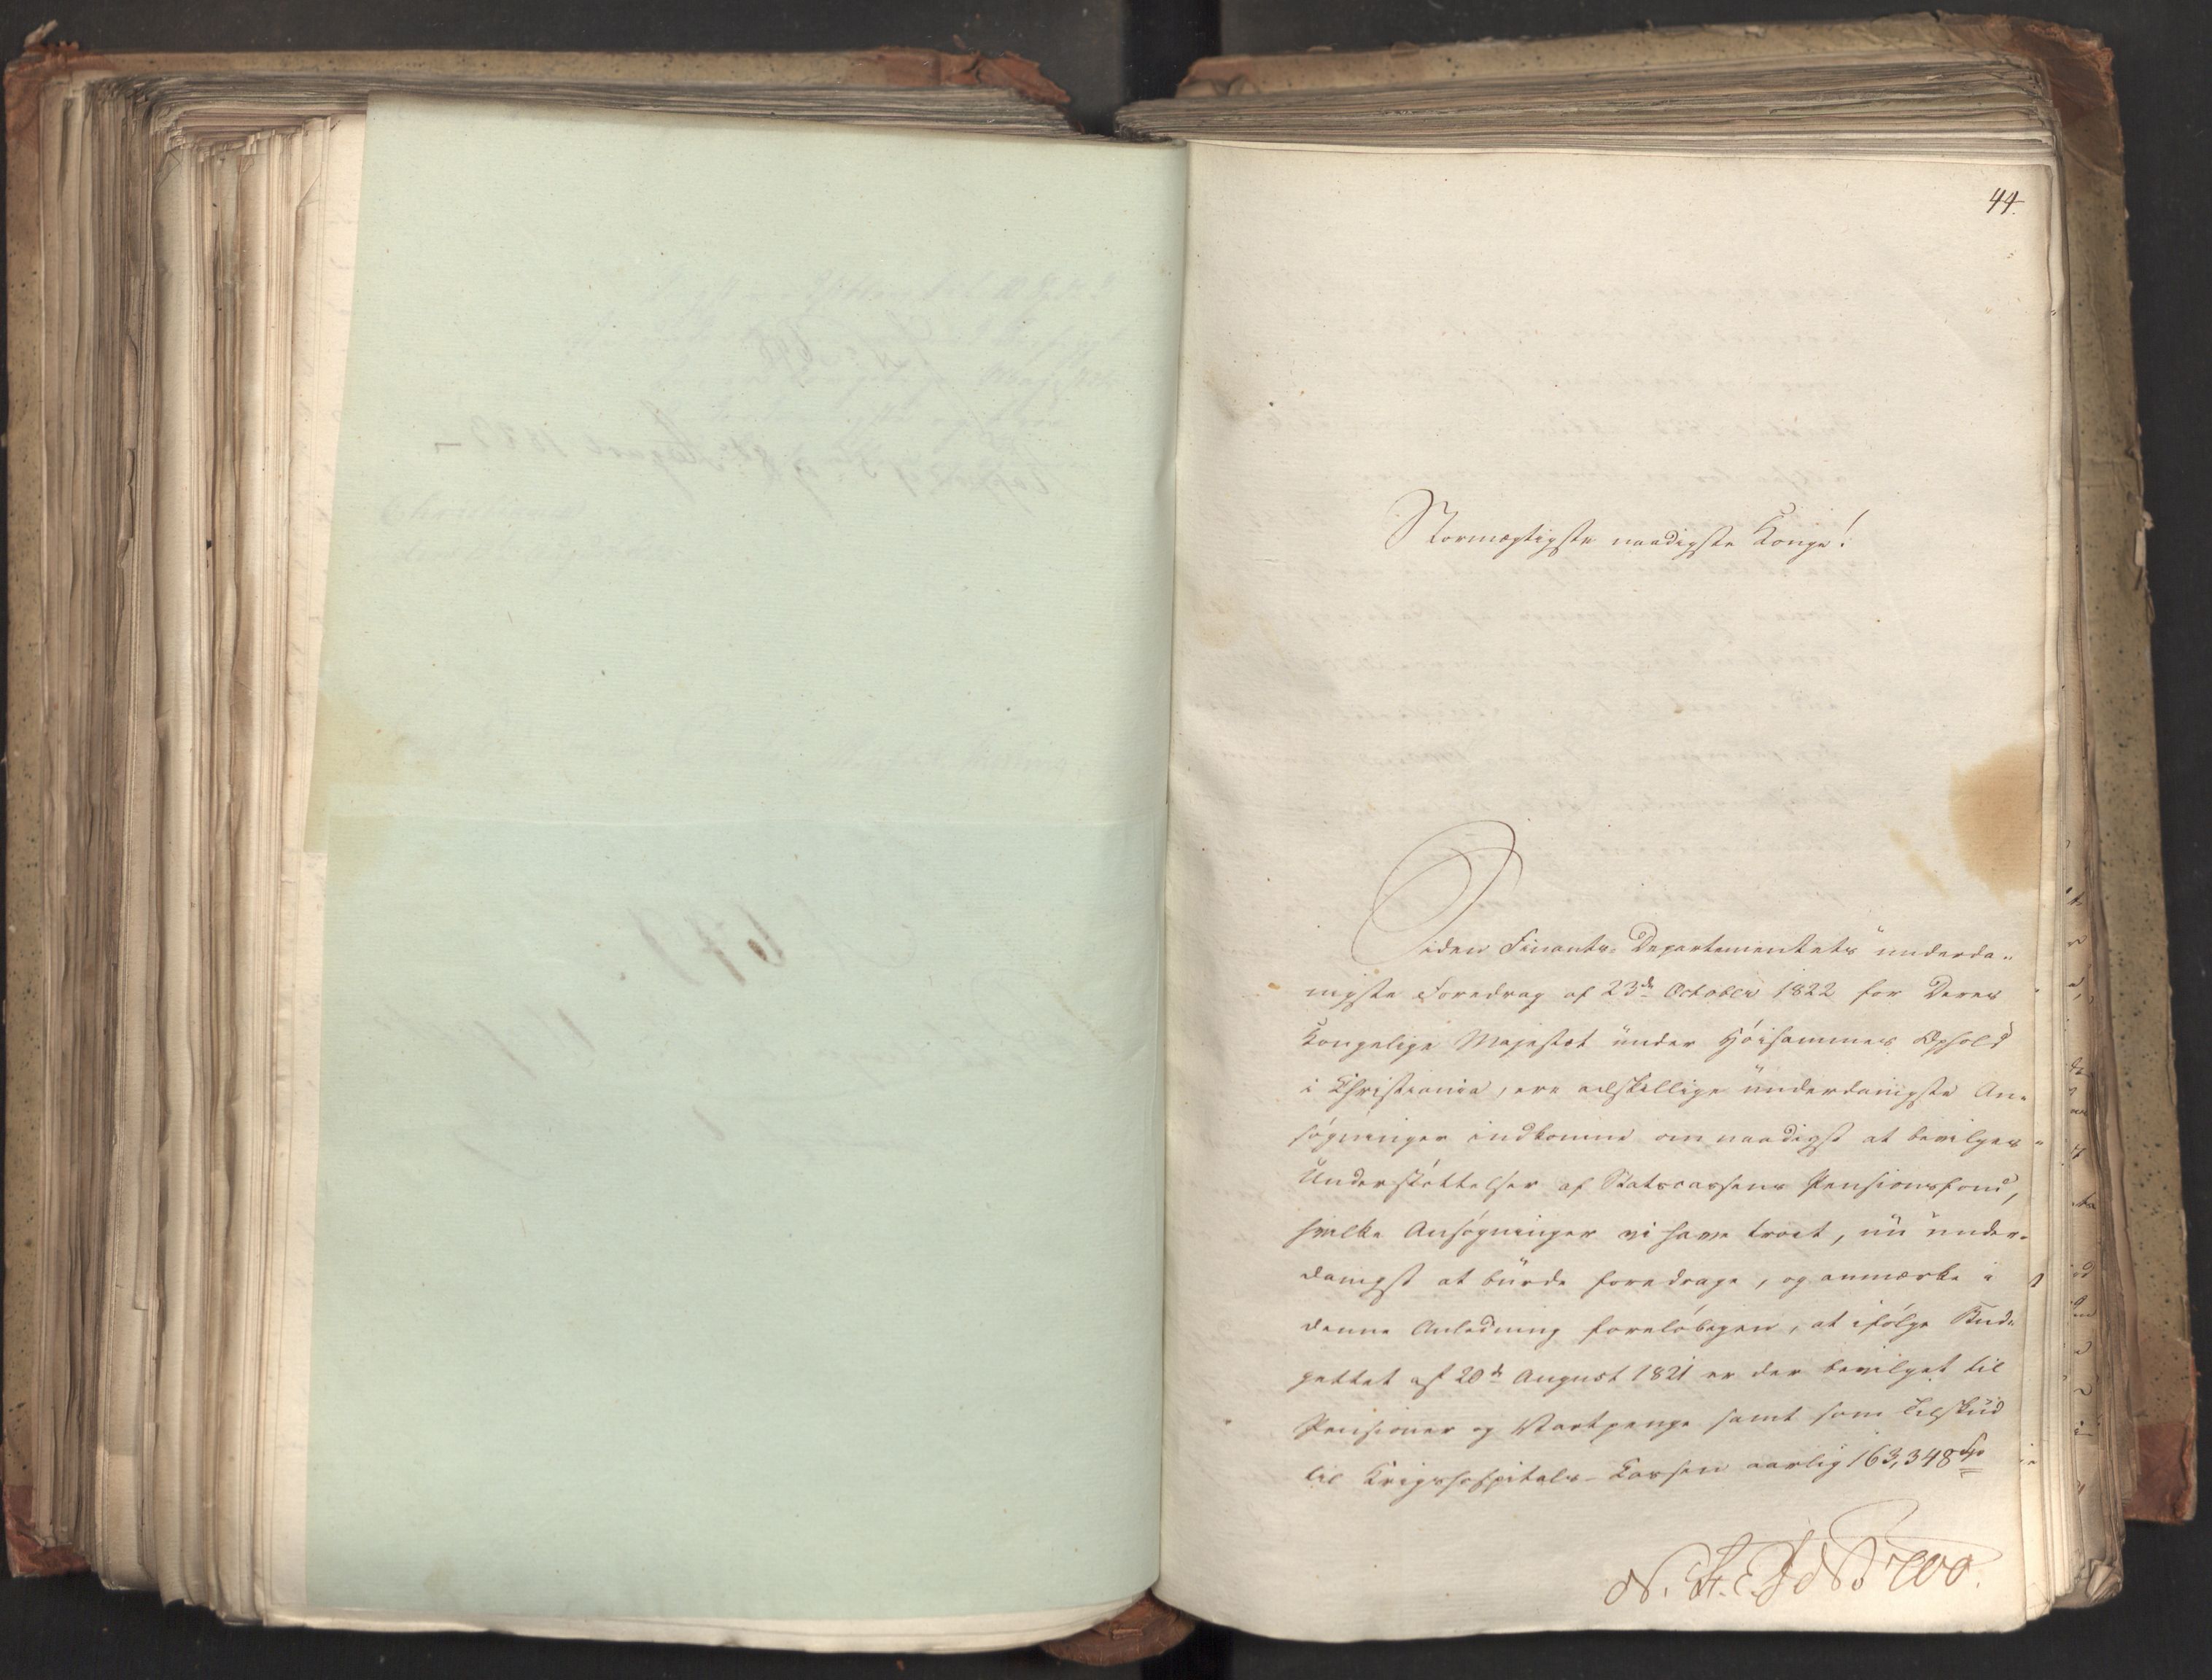 44.
Stormægtigste naadigste Konge!
Siden Finants-Departementets underda-
nigste Foredrag af 23de October 1822 for Deres
Kongelige Majestæt under Høisammes Ophold
i Christiania, ere adskillige underdanigste An-
søgninger indkomne om naadigst at bevilges
Understøttelser af Statscassens Pensionsfond,
hvilke Ansøgninger vi have troet, nu under-
danigst at burde foredrage, og anmærke i
denne Anledning foreløbigen, at ifølge Bud-
gettet af 20de August 1821 er der bevilget til
Pensioner og Vartpenge samt som Tilskud
til Krigshospitals-Cassen aarlig 163,348 Sp
N. St. E. J. No 700.